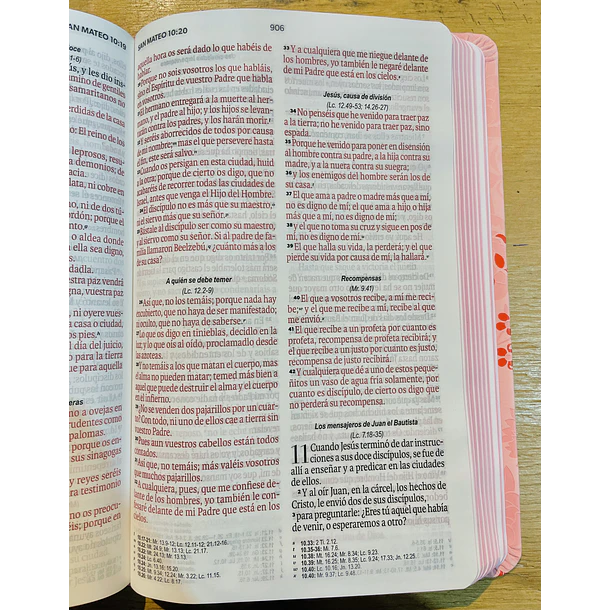 SAN MATEO 10:19
oce
-6)
s, y les dio ins
mino de gentiles
samaritanos no
erdidas de la casa
o: El reino de los
leprosos, resu-
de demonios; de
acia.
lata, ni cobre en
ni de dos tú-
ordón; porque el
o aldea donde
ella sea digno,
dadla.
stra paz vendrá
na, vuestra paz
ni oyere vues-
casa o ciudad,
pies.
el día del juicio,
o para la tierra
para aquella
eras
o a ovejas en
rudentes como
palomas.
porque os en-
sus sinagogas
y reyes seréis
ra testimonio
o os preocu-
s; porque en
SAN MATEO 10:20
906
aquella hora os será dado lo que habéis de
hablar.
Porque no sois vosotros los que habláis,
sino el Espíritu de vuestro Padre que habla
en vosotros.
El hermano entregará a la muerte al her-
mano, y el padre al hijo; y los hijos se levan-
tarán contra los padres, y los harán morir.
Y seréis aborrecidos de todos por causa
de mi nombre; mas el que persevere hasta
el fin, este será salvo.
Cuando os persigan en esta ciudad, huid
a la otra; porque de cierto os digo, que no
acabaréis de recorrer todas las ciudades de
Israel, antes que venga el Hijo del Hombre.
El discípulo no es más que su maestro,
ni el siervo más que su señor.
25 Bástale al discípulo ser como su maestro,
y al siervo como su señor. Si al padre de fa-
milia llamaron Beelzebú, ¿cuánto más a los
de su casa?
A quién se debe temer
(Lc. 12.2-9)
26 Así que, no los temáis; porque nada hay
encubierto, que no haya de ser manifestado;
ni oculto, que no haya de saberse.
Lo que os digo en tinieblas, decidlo en la
luz; y lo que oís al oído, proclamadlo desde
las azoteas.
Y no temáis a los que matan el cuerpo, mas
el alma no pueden matar; temed más bien a
aquel que puede destruir el alma y el cuerpo
en el infierno.
¿No se venden dos pajarillos por un cuar-
to? Con todo, ni uno de ellos cae a tierra sin
vuestro Padre.
Pues aun vuestros cabellos están todos
contados.
Así que, no temáis; más valéis vosotros
que muchos pajarillos.
A cualquiera, pues, que me confiese de-
lante de los hombres, yo también le con-
fesaré delante de mi Padre que está en los
cielos.
33 Y a cualquiera que me niegue delante de
los hombres, yo también le negaré delante
de mi Padre que está en los cielos.
Jesús, causa de división
(Lc. 12.49-53; 14.26-27)
34 No penséis que he venido para traer paz
a la tierra; no he venido para traer paz, sino
espada.
35 Porque he venido para poner en disensión
al hombre contra su padre, a la hija contra su
madre, y a la nuera contra su suegra;
36 y los enemigos del hombre serán los de
su casa.
37 El que ama a padre o madre más que a mí,
no es digno de mí; el que ama a hijo o hija
más que a mí, no es digno de mí;
38 y el que no toma su cruz y sigue en pos de
mí, no es digno de mí.
39 El que halla su vida, la perderá; y el que
pierde su vida por causa de mí, la hallará.
Recompensas
(Mr. 9.41)
40 El que a vosotros recibe, a mí me reci-
be; y el que me recibe a mí, recibe al que
me envió.
41 El que recibe a un profeta por cuanto es
profeta, recompensa de profeta recibirá; y
el que recibe a un justo por cuanto es justo,
recompensa de justo recibirá.
42 Y cualquiera que dé a uno de estos peque-
ñitos un vaso de agua fría solamente, por
cuanto es discípulo, de cierto os digo que
no perderá su recompensa.
Los mensajeros de Juan el Bautista
(Lc. 7.18-35)
11 Cuando Jesús terminó de dar instruc-
ciones a sus doce discípulos, se fue de
allí a enseñar y a predicar en las ciudades
de ellos.
2 Y al oír Juan, en la cárcel, los hechos de
Cristo, le envió dos de sus discípulos,
3 para preguntarle: ¿Eres tú aquel que había
de venir, o esperaremos a otro?
10.17-21: Mr. 13.9-12; Lc. 12.11-12; 21.12-16.
10.21: Mt. 24.9; Mr. 13.13; Lc. 21.17.
10.22: Mt. 24.13; Mr. 13.13.
10.24: Lc. 6.40.
10.24: Jn. 13.16; 15.20.
10.25: Mt. 9.34; 12.24; Mr. 3.22; Lc. 11.15.
10.26: Mr. 4.22; Lc. 8.17.
10.33: 2 Ti. 2.12.
10.35-36: Mi. 7.6.
10.38: Mt. 16.24; Mr. 8.34; Lc. 9.23.
10.39: Mt. 16.25; Mr. 8.35; Lc. 9.24; 17.33; Jn. 12.25.
10.40: Lc. 10.16; Jn. 13.20.
10.40: Mr. 9.37; Lc. 9.48.